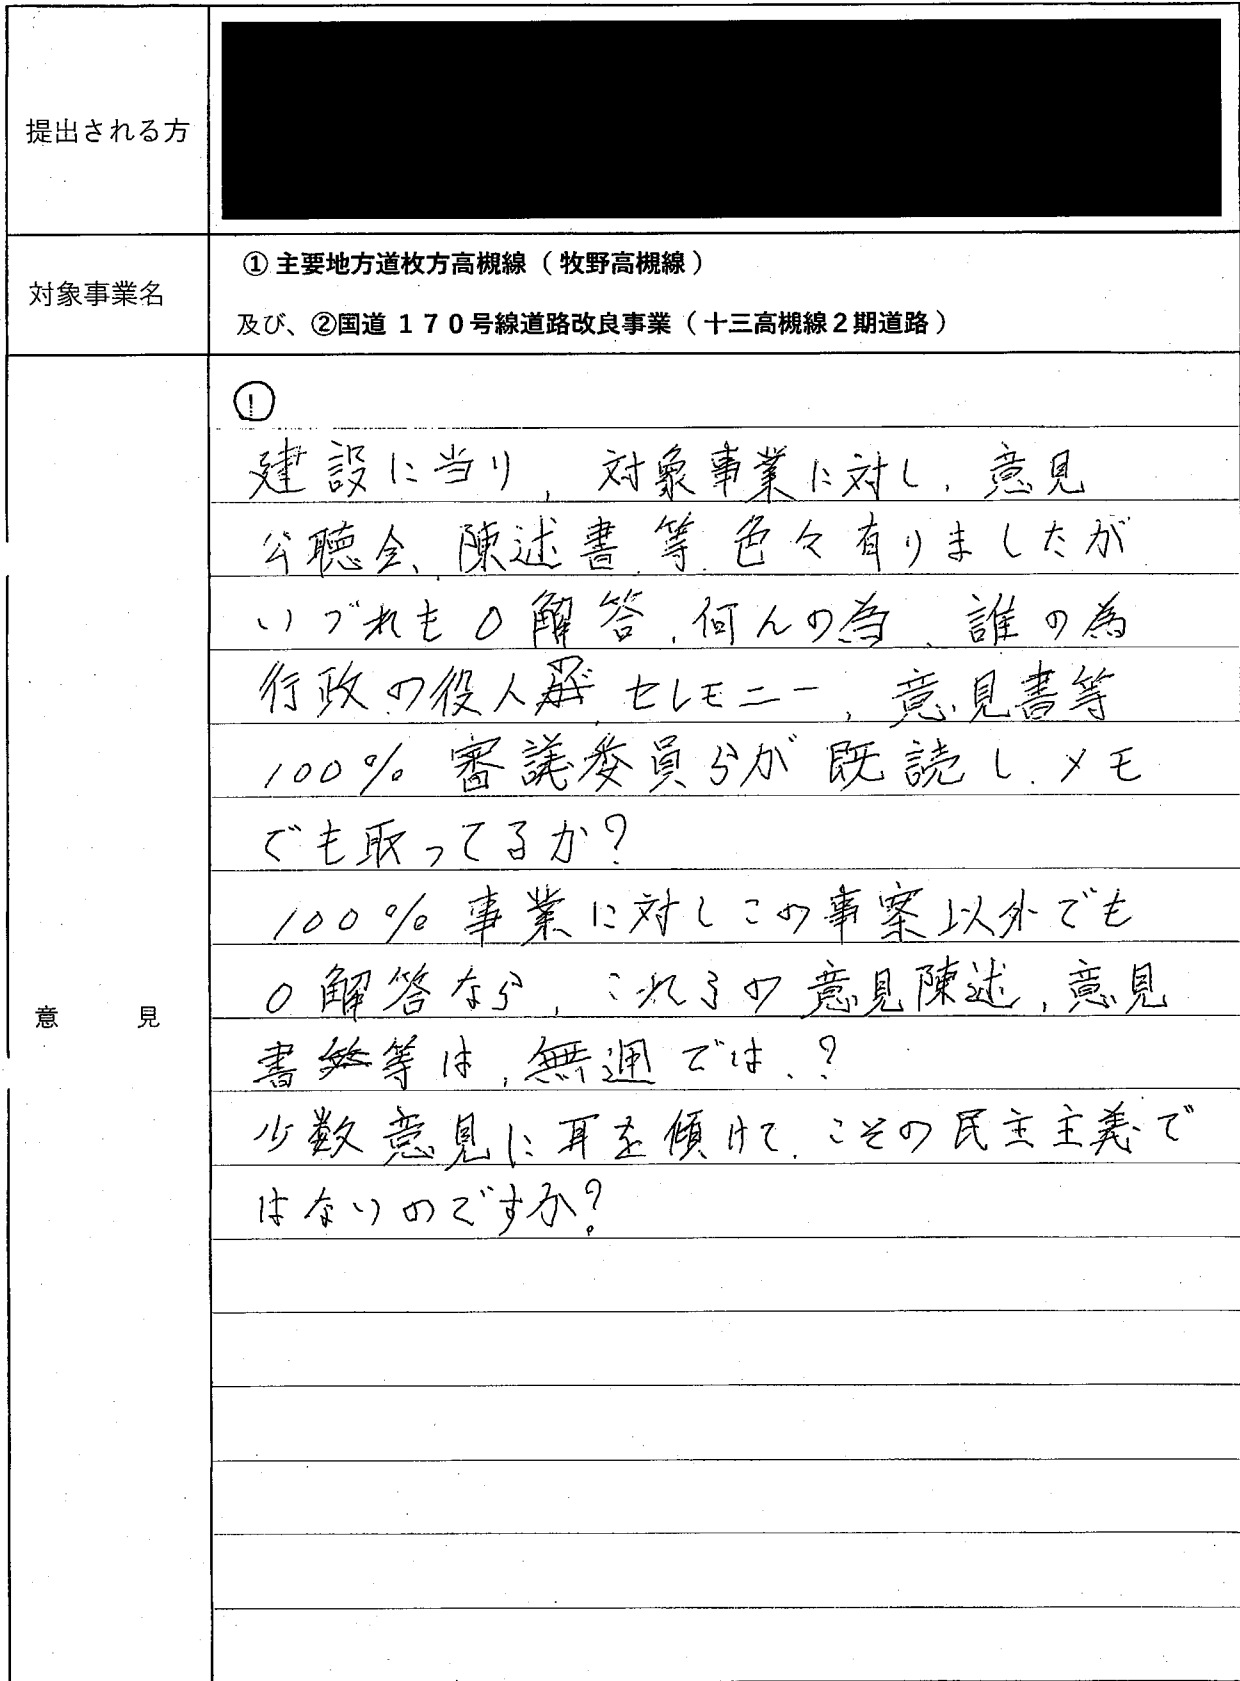 提出される方
対象事業名
① 主要地方道枚方高槻線（牧野高槻線）
及び、②国道１７０号線道路改良事業（十三高槻線２期道路）
意見
①
建設に当り、対象事業に対し、意見
公聴会、陳述書、等、色々有りましたが
いづれも０解答、何んの為、誰の為
行政の役人の セレモニー、意見書等
100% 審議委員らが既読し、メモ
でも取ってるか？
100% 事業に対しこの事案以外でも
０解答なら、これらの意見陳述、意見
書等は、無通では、？
少数意見に耳を傾けて、こその民主主義で
はないのですか？